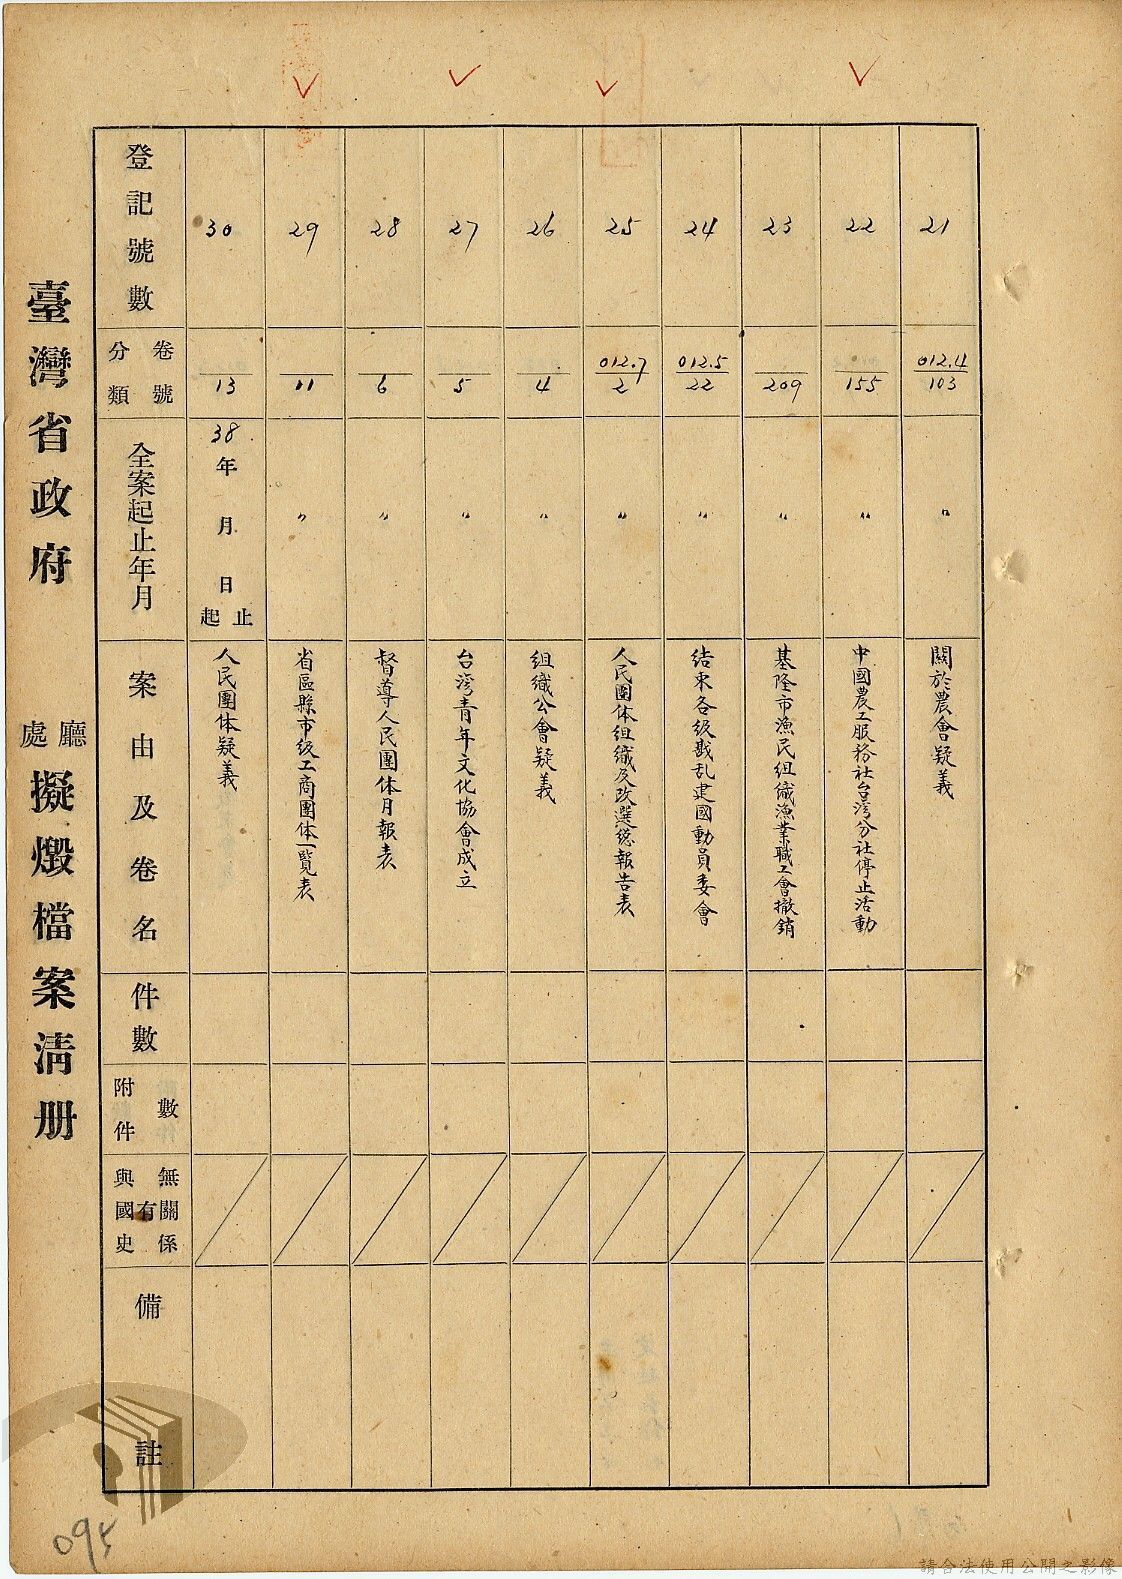 臺灣省政府 廳處 擬燬檔案清册
登記號數
21
22
23
24
25
26
27
28
29
30
分類 卷號
012.4/103
155
209
012.5/22
012.7/2
4
5
6
11
13
全案起止年月
〃
〃
〃
〃
〃
〃
〃
〃
〃
38年 月 日 起止
案由及卷名
關於農會疑義
中國農工服務社台湾分社停止活動
基隆市漁民組織漁業職工會撤銷
结束各级戡乱建國動員委會
人民團体組織及改選總報告表
組織公會疑義
台湾青年文化協會成立
督導人民團体月報表
省區縣市级工商團体一覽表
人民團体疑義
件數
附件數
與國史有無關係
備註
095
請合法使用公開之影像